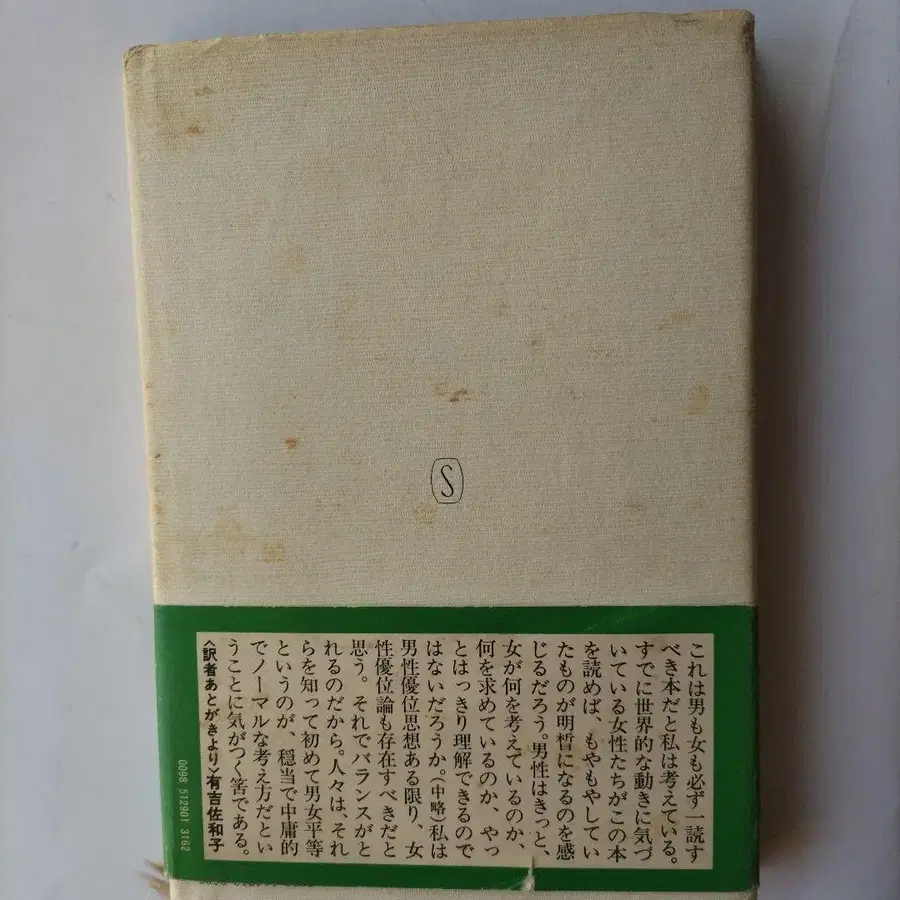 S
これは男も女も必ず一読す
べき本だと私は考えている。
すでに世界的な動きに気づ
いている女性たちがこの本
を読めば、もやもやしてい
たものが明晳になるのを感
じるだろう。男性はきっと、
女が何を考えているのか、
何を求めているのか、やっ
とはっきり理解できるので
はないだろうか。(中略)私は
男性優位思想ある限り、女
性優位論も存在すべきだと
思う。それでバランスがと
れるのだから。人々は、それ
らを知って初めて男女平等
というのが、穏当で中庸的
でノーマルな考え方だとい
うことに気がつく筈である。
〈訳者あとがきより〉有吉佐和子
0098 512901 3162